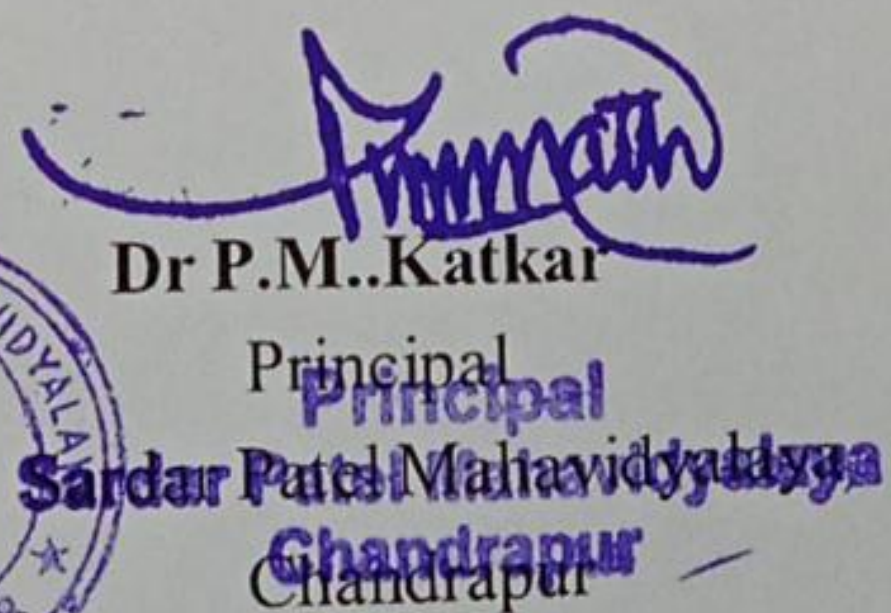 Dr P.M..Katkar
Principal
Principal
Sardar Patel Mahavidyalaya,
Sardar Patel Mahavidyalaya
Chandrapur
Chandrapur